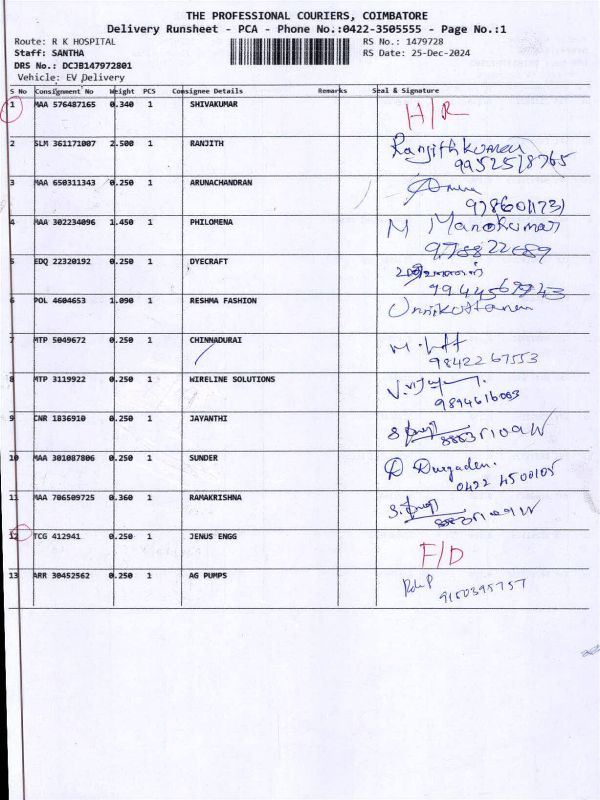 THE PROFESSIONAL COURIERS, COIMBATORE
Delivery Runsheet - PCA - Phone No.:0422-3505555 - Page No.:1
Route: R K HOSPITAL RS No.: 1479728
Staff: SANTHA RS Date: 25-Dec-2024
DRS No.: DCJB147972801
Vehicle: EV Delivery
S No Consignment No Weight PCS Consignee Details Remarks Seal & Signature
1 MAA 576487165 0.340 1 SHIVAKUMAR H/R
2 SLM 361171007 2.500 1 RANJITH Ranjithkumar
9952578765
3 MAA 650311343 0.250 1 ARUNACHANDRAN
4 MAA 302234096 1.450 1 PHILOMENA M Manokumar
5 EDQ 22320192 0.250 1 DYECRAFT
6 POL 4604653 1.090 1 RESHMA FASHION Unnikuttanan
7 MTP 5049672 0.250 1 CHINNADURAI
9842267553
8 MTP 3119922 0.250 1 WIRELINE SOLUTIONS
9894616083
9 CNR 1836910 0.250 1 JAYANTHI
10 MAA 301087806 0.250 1 SUNDER D Durgadevi
0422 4500105
11 MAA 706509725 0.360 1 RAMAKRISHNA
12 TCG 412941 0.250 1 JENUS ENGG F/D
13 ARR 30452562 0.250 1 AG PUMPS
9150395757